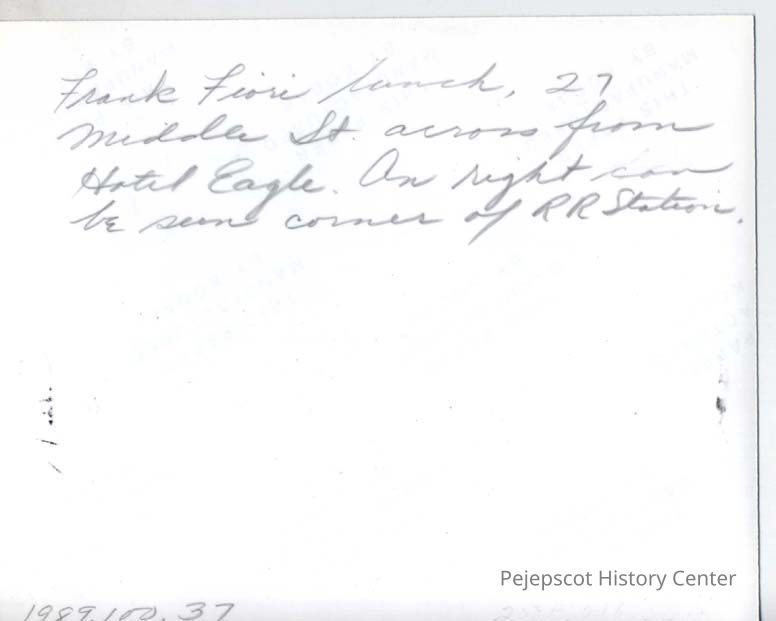 Frank Fiori lunch, 27
Middle St. across from
Hotel Eagle. On right can
be seen corner of RR Station.
Pejepscot History Center
1989.100.37